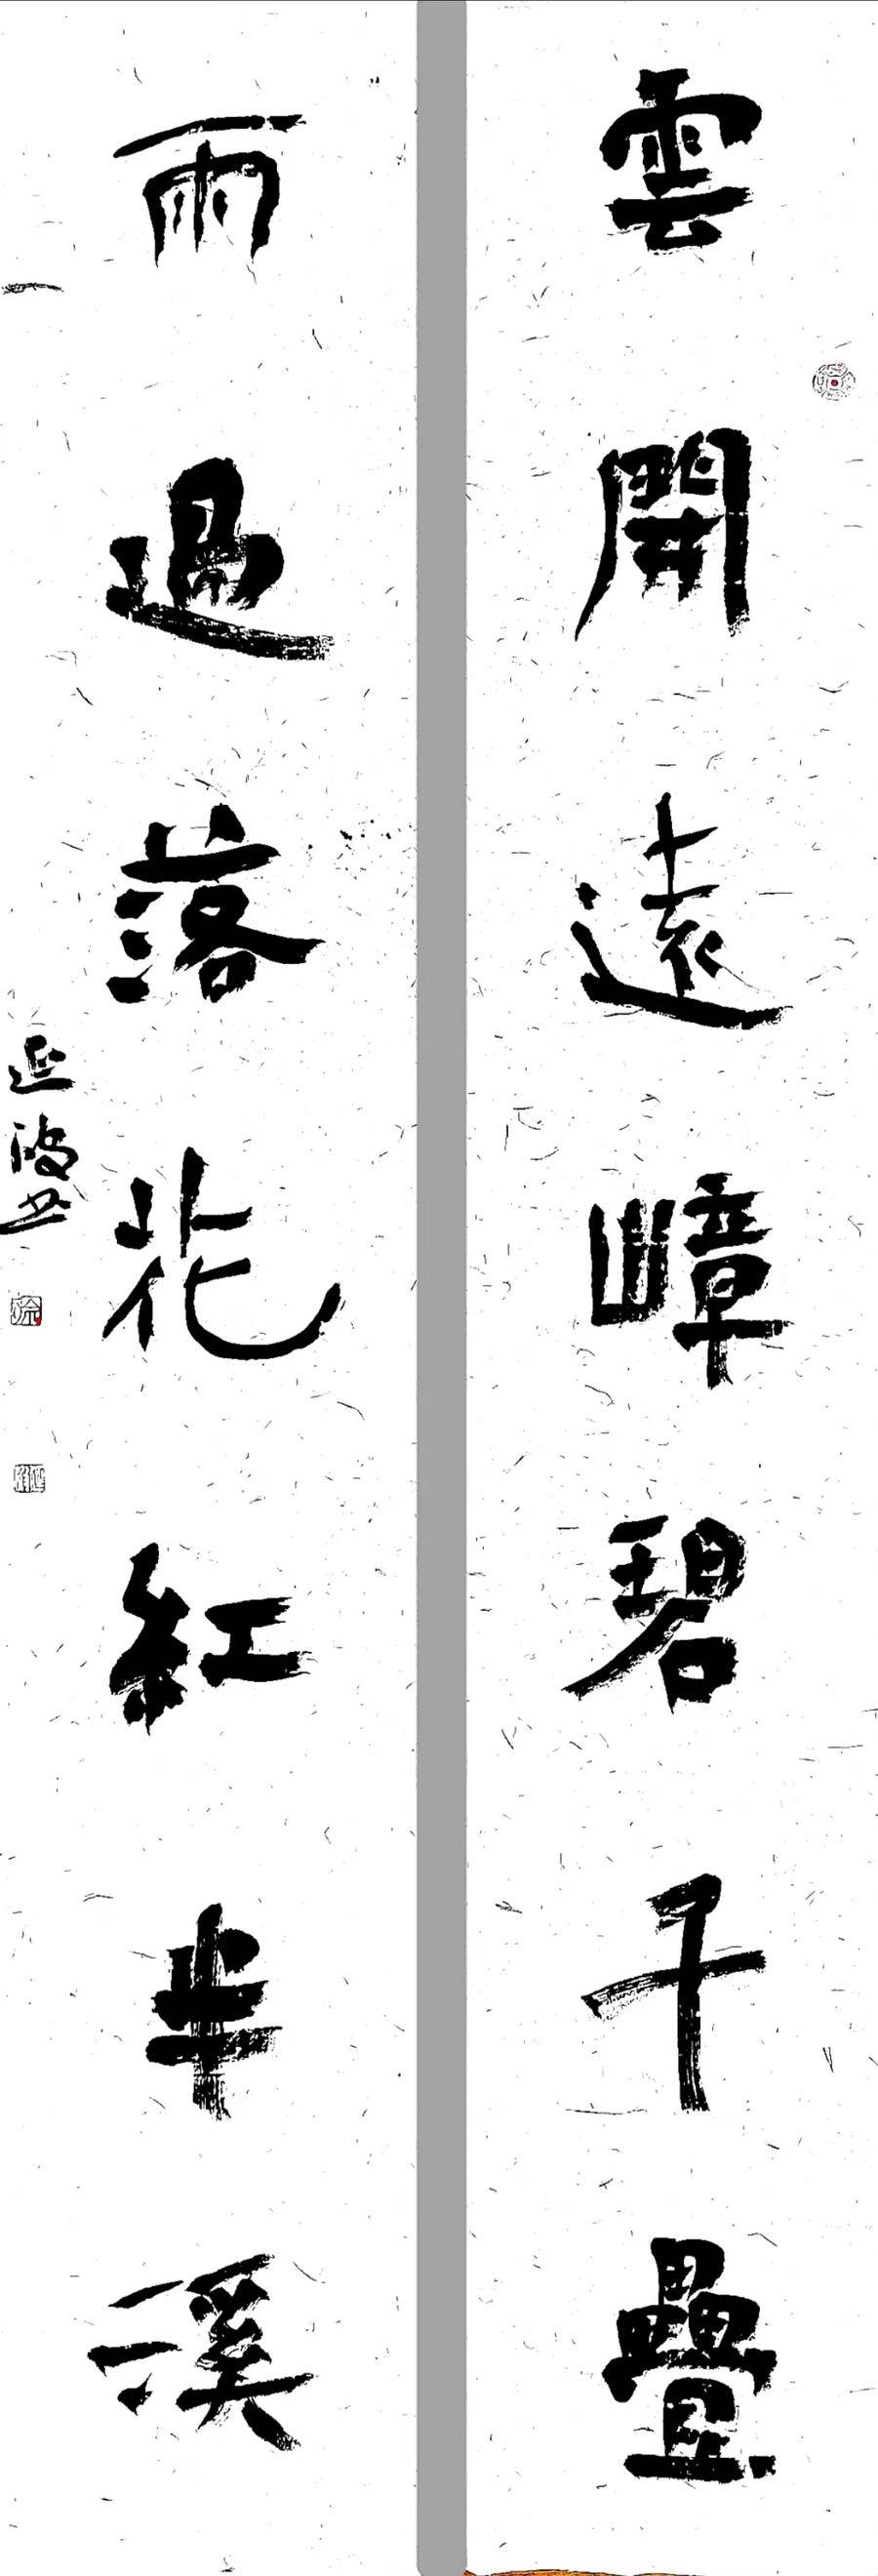 雲開遠嶂碧千疊
雨過落花紅半溪
延波书